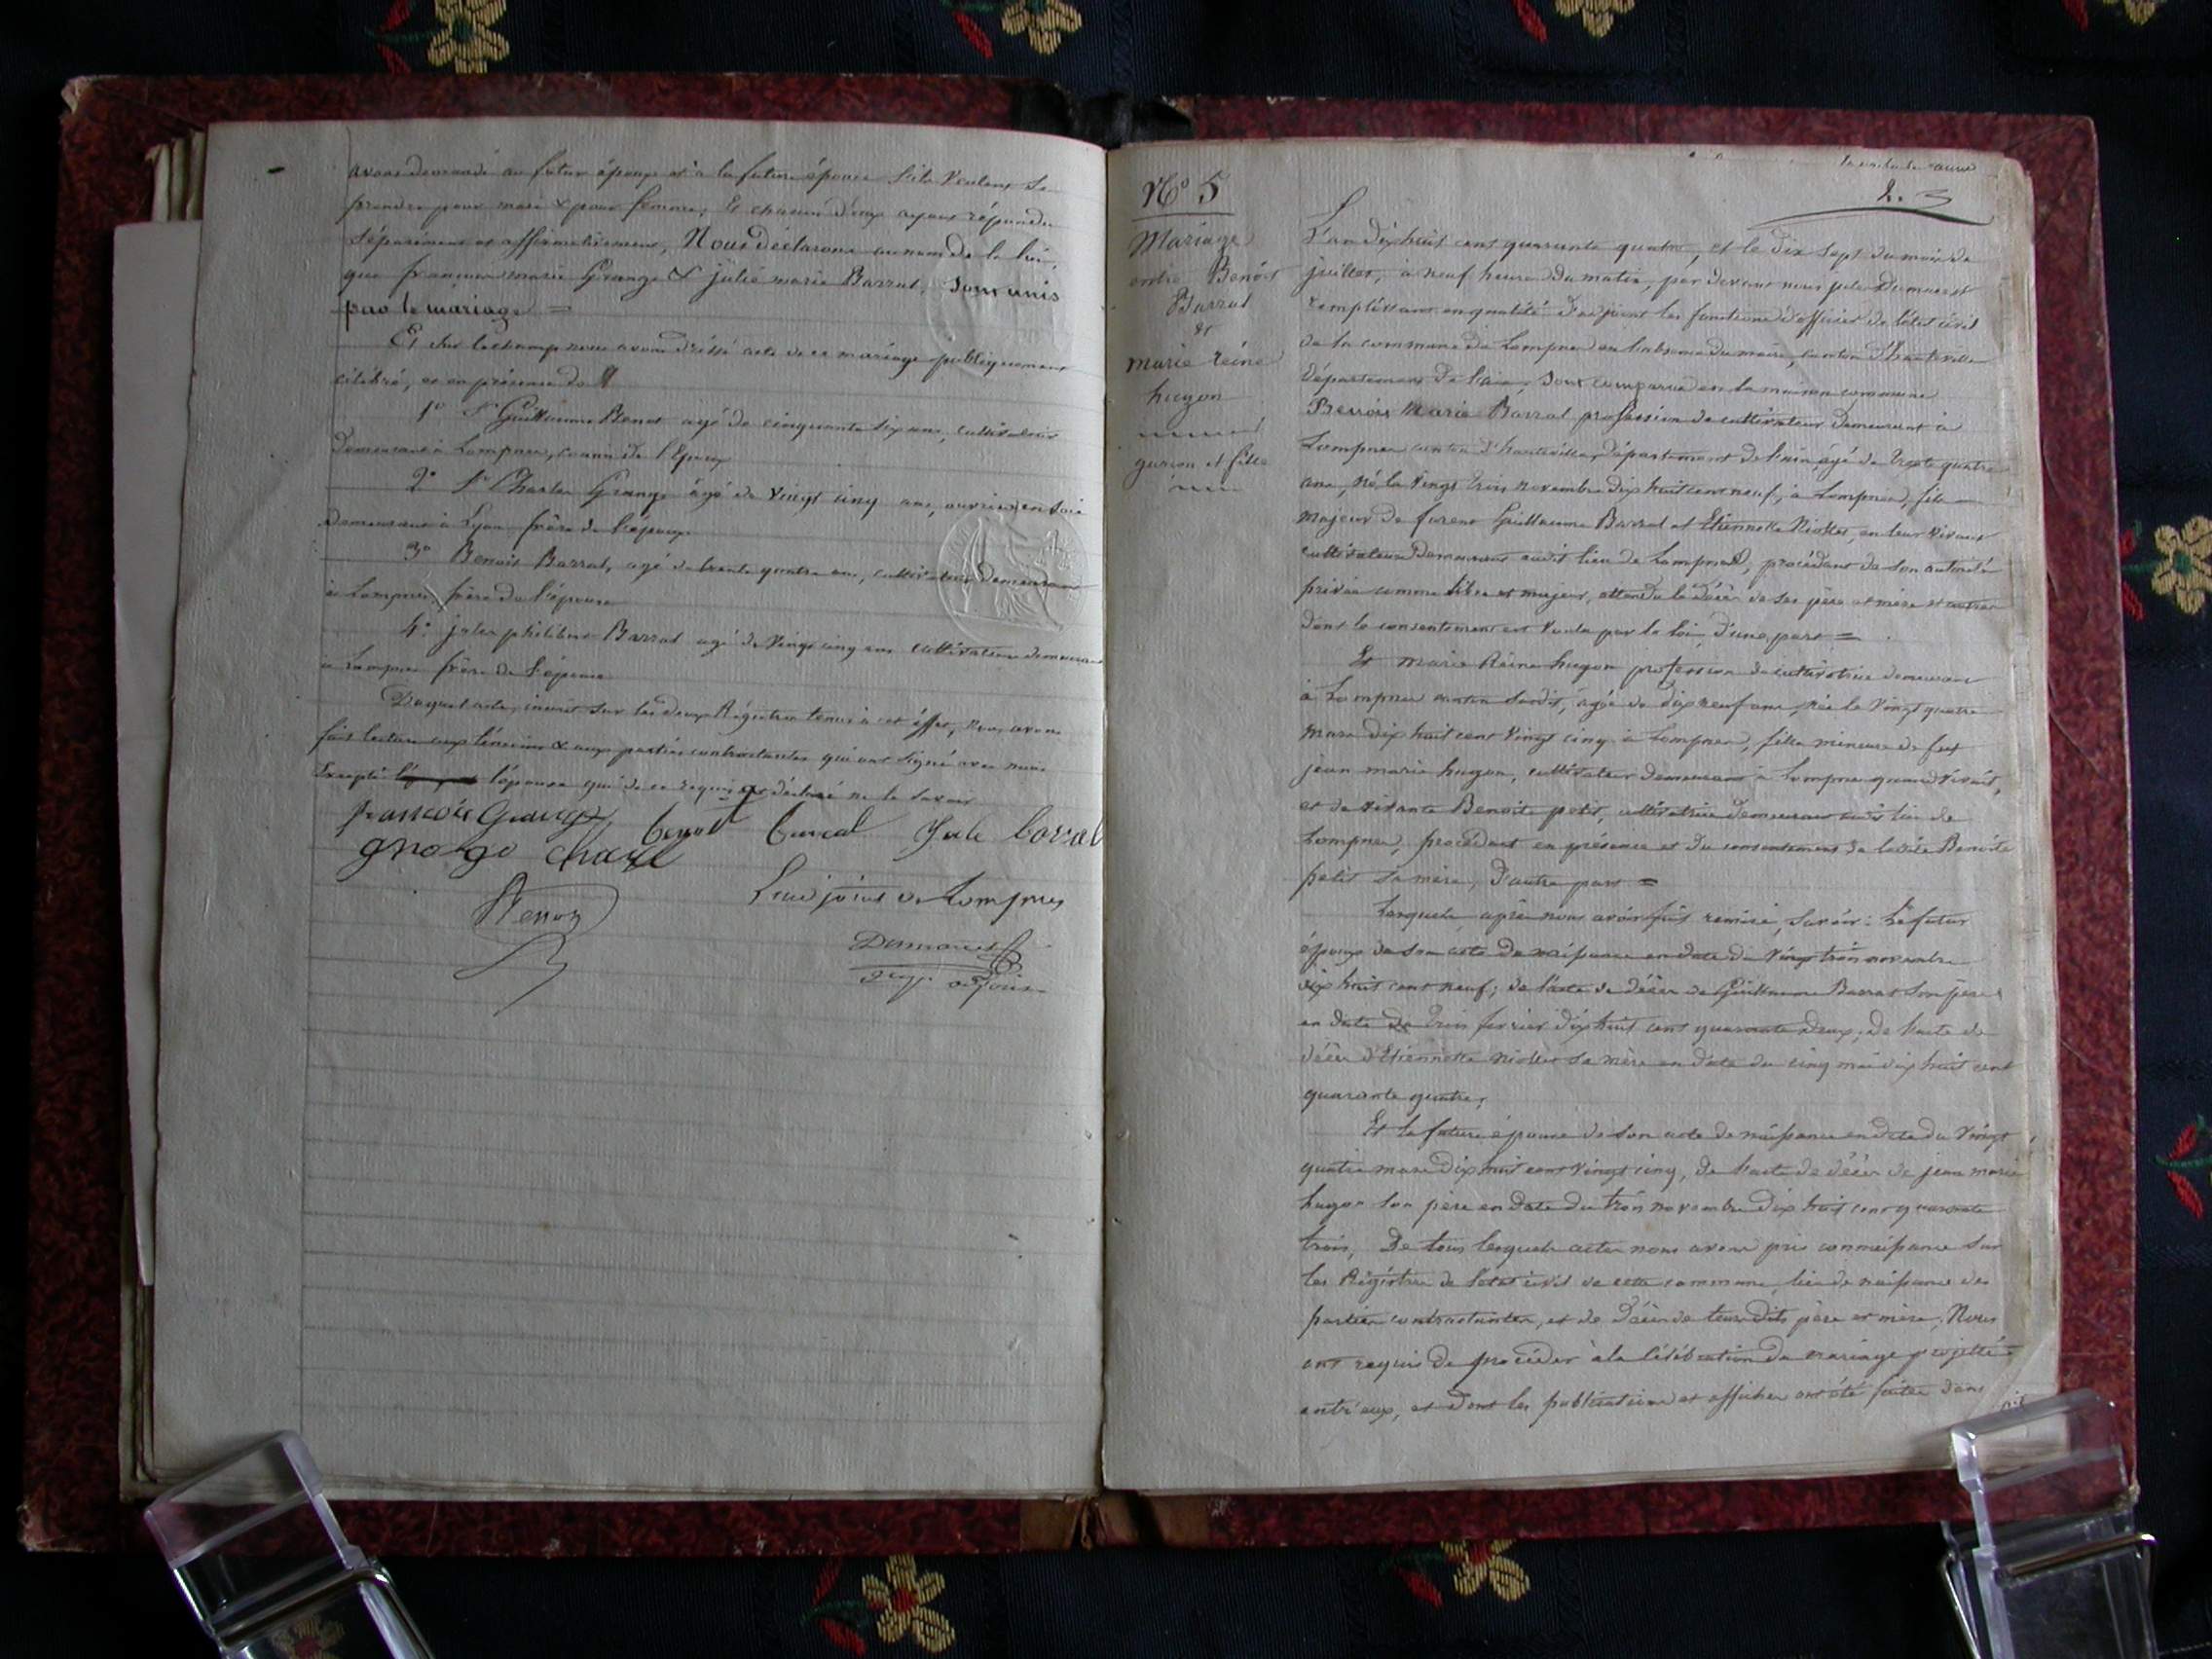 avons demandé au futur époux et à la future épouse s'ils veulent se
prendre pour mari & pour femme, Et chacun d'eux ayant répondu
séparément et affirmativement, Nous déclarons au nom de la loi,
que françois marie Grange & julie marie Barral, sont unis
par le mariage =
Et sur le champ nous avons dressé acte de ce mariage publiquement
célébré, et en présence de
1° Sr Guillaume Benot agé de cinquante six ans, cultivateur
demeurant à Lompnes, cousin de l'Epoux
2° Sr Charles Grange âgé de vingt cinq ans, ouvrier en soie
demeurant à Lyon frère de l'époux
3° Benoit Barral, agé de trente quatre ans, cultivateur demeurant
à Lompnes, frère de l'épouse
4° jules philibert Barral agé de vingt cinq ans cultivateur demeurant
à Lompnes frère de l'épouse
Duquel acte, inscrit sur les deux Régistres tenus à cet effet, nous avons
fait lecture aux témoins & aux parties contractantes qui ont signé avec nous
Excepté l'épouse qui de ce requise a déclaré ne le savoir
françois Grange Jule barral
L'adjoint de Lompnes
Dumarest
adjoint
N° 5
2. 3
Mariage
entre Benoit
Barral
&
marie reine
hugon
garçon et fille
L'an dix huit cent quarante quatre, et le dix sept du mois de
juillet, à neuf heures du matin, par devant nous jules Dumarest
remplissant en qualité d'adjoint les fonctions d'officier de l'état civil
de la commune de Lompnes en l'absence du maire, canton d'hauteville
département de l'ain, sont comparus en la maison commune
Benoit Marie Barral profession de cultivateur demeurant à
Lompnes canton d'hauteville, département de l'ain, âgé de trente quatre
ans, né le vingt trois novembre dix huit cent neuf, à Lompnes, fils
majeur de furent Guillaume Barral et Etiennette Niollet, en leur vivant
cultivateurs demeurant audit lieu de Lompnes, procédant de son autorité
privée comme libre et majeur, attendu le décès de ses père et mère et autres
dont le consentement est voulu par la loi, d'une part =
Et marie Reine hugon profession de cultivatrice demeurant
à Lompnes canton susdit, âgée de dix neuf ans, née le vingt quatre
mars dix huit cent vingt cinq à Lompnes, fille mineure de feu
jean marie hugon, cultivateur demeurant à Lompnes quand vivait,
et de vivante Benoite petit, cultivatrice demeurant audit lieu de
Lompnes, procédant en présence et du consentement de ladite Benoite
petit sa mère, d'autre part =
Lesquels, après nous avoir fait remise, savoir: Le futur
époux de son acte de naissance en date du vingt trois novembre
dix huit cent neuf; de l'acte de décès de Guillaume Barral son père
en date du trois fevrier dix huit cent quarante deux; de l'acte de
décès d'Etiennette niollet sa mère en date du cinq mai dix huit cent
quarante quatre;
Et la future épouse de son acte de naissance en date du vingt
quatre mars dix huit cent vingt cinq, de l'acte de décès de jean marie
hugon son père en date du trois novembre dix huit cent quarante
trois, De tous lesquels actes nous avons pris connaissance sur
les Régistres de l'état civil de cette commune, lieu de naissance des
parties contractantes, et de décès de leurs dits père et mère; Nous
ont requis de procéder à la célébration du mariage projetté
entr'eux, et dont les publications et affiches ont été faites dans